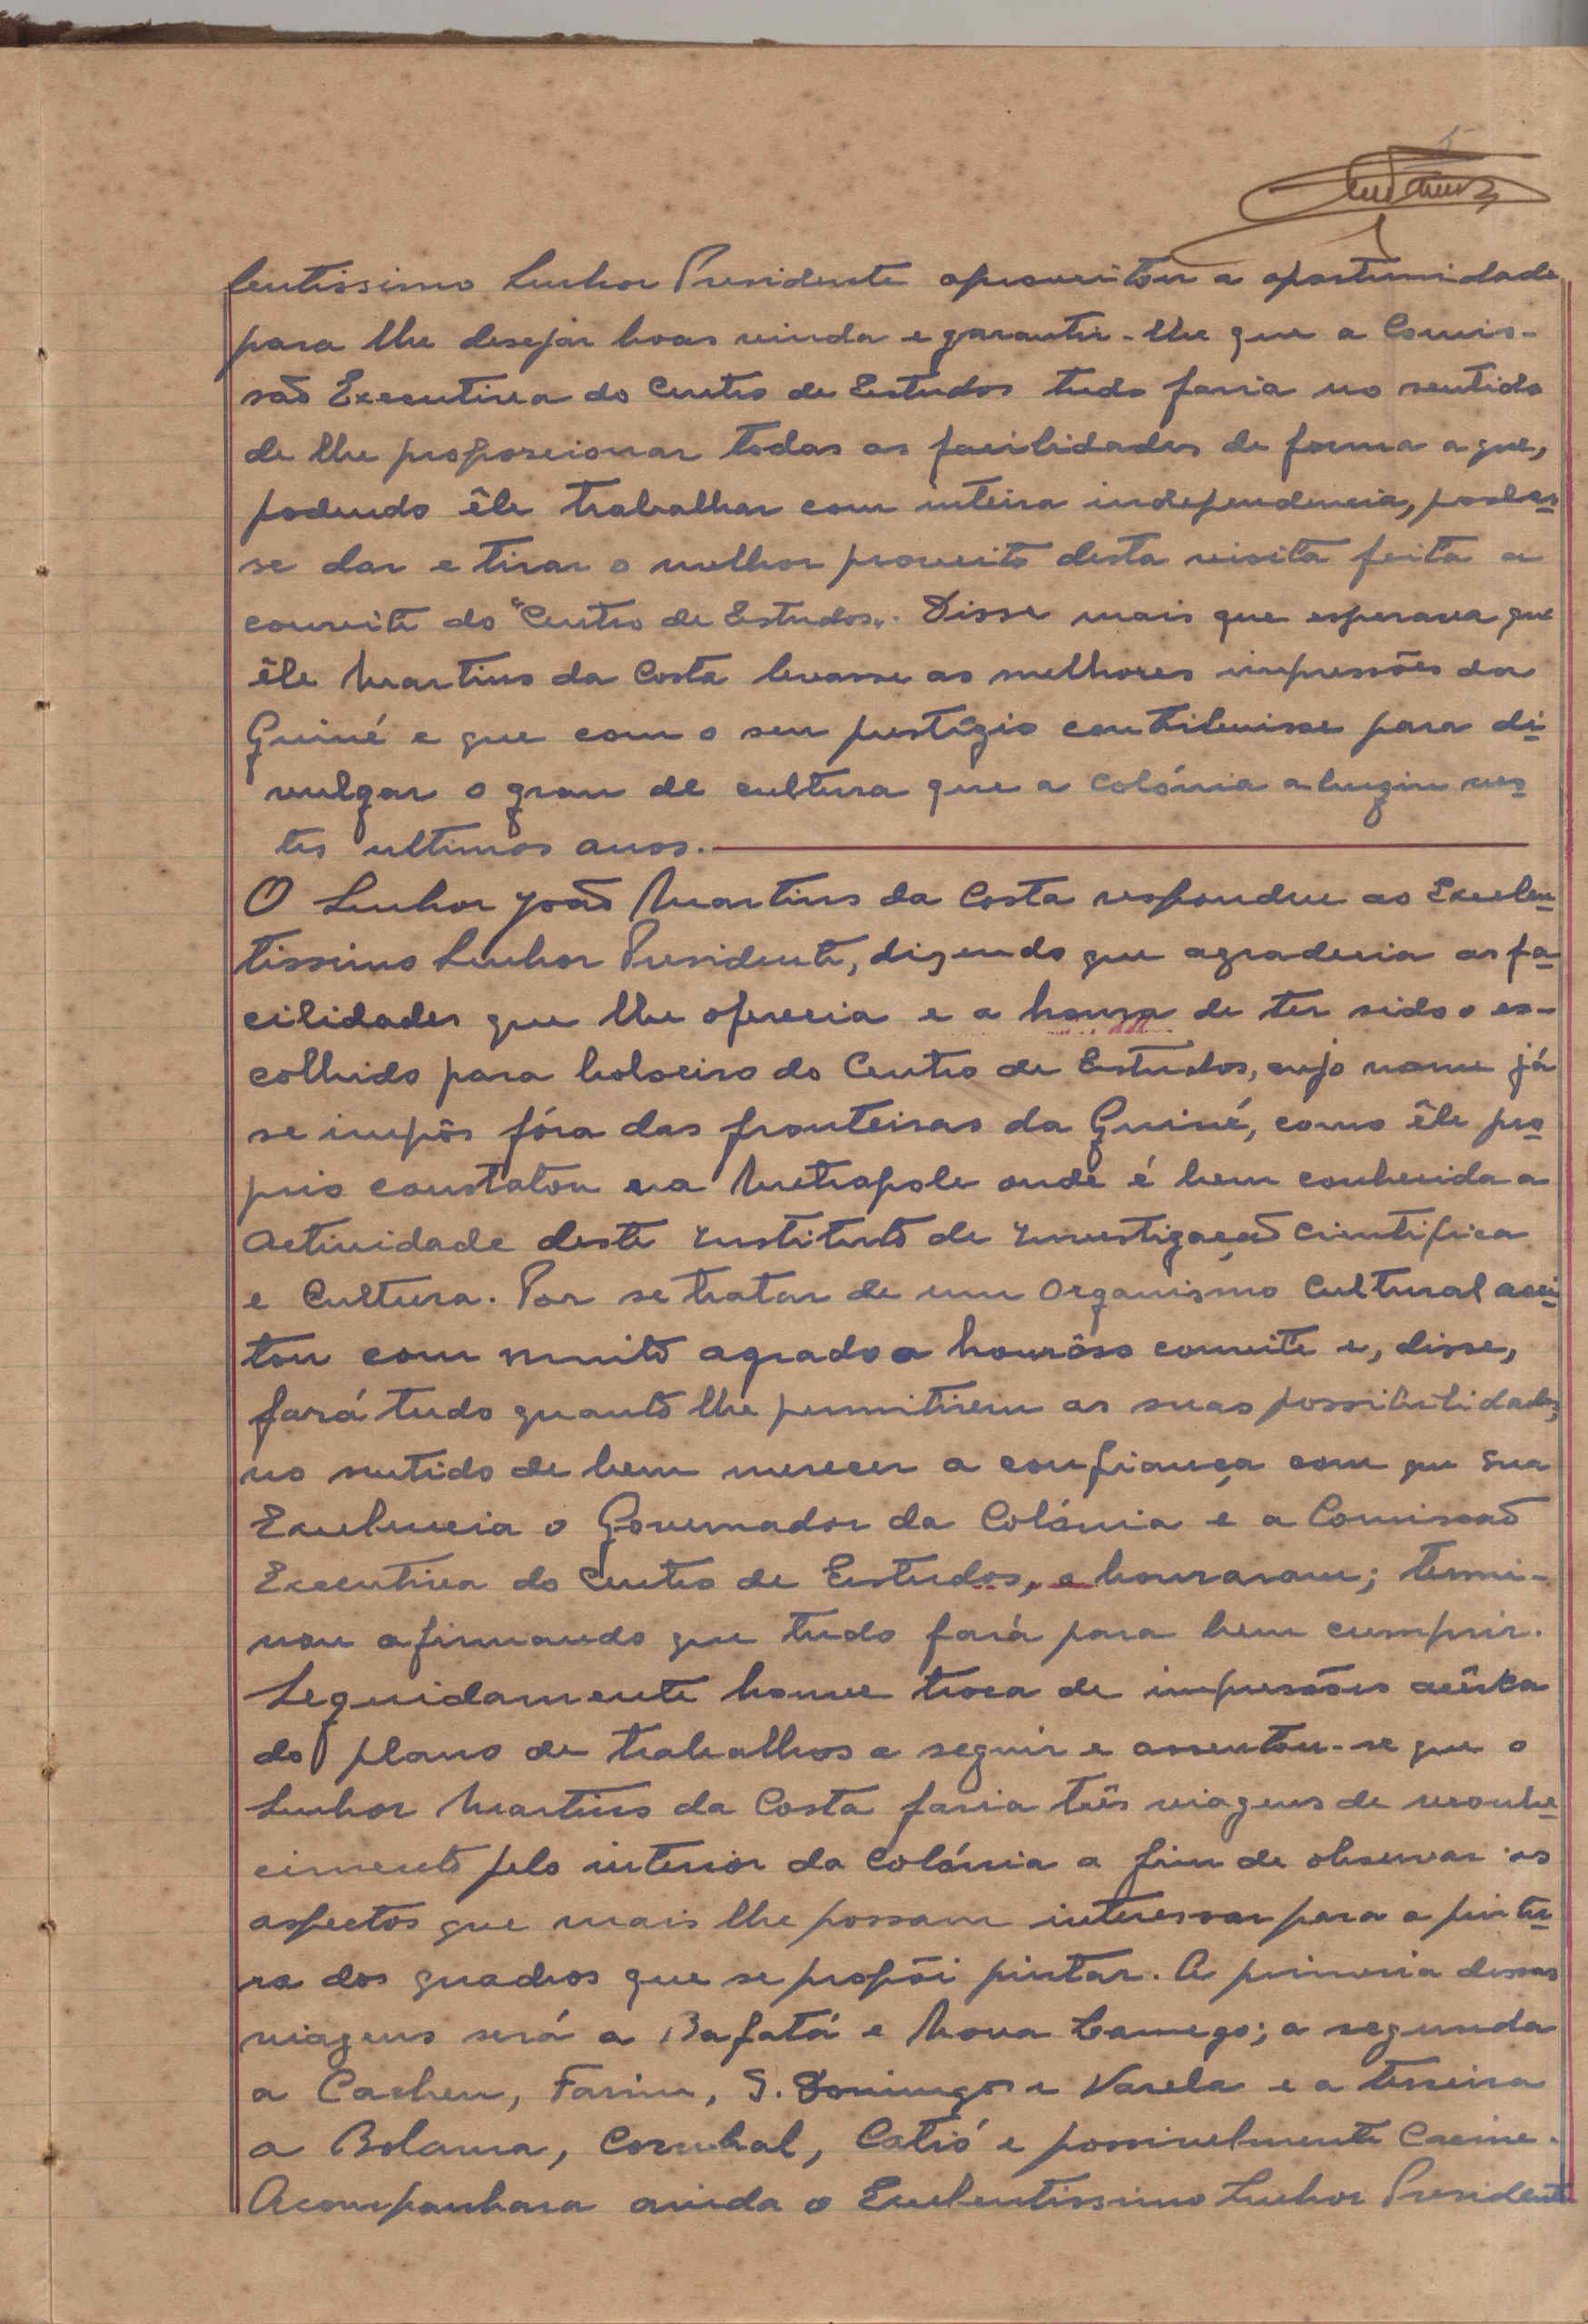 5
lentissimo Senhor Presidente aproveitou a oportunidade
para lhe desejar boas vinda e garantir-lhe que a Comis-
são Executiva do Centro de Estudos tudo faria no sentido
de lhe proporcionar todas as facilidades de forma a que,
podendo êle trabalhar com inteira independencia, podes-
se dar e tirar o melhor proveito desta visita feita a
convite do "Centro de Estudos". Disse mais que esperava que
êle Martins da Costa levasse as melhores impressões da
Guiné e que com o seu prestígio contribuisse para di-
vulgar o grau de cultura que a colónia atingiu nes-
tes ultimos anos.
O Senhor João Martins da Costa respondeu ao Excelen-
tissimo Senhor Presidente, dizendo que agradecia as fa-
cilidades que lhe oferecia e a honra de ter sido o es-
colhido para bolseiro do Centro de Estudos, cujo nome já
se impôs fóra das fronteiras da Guiné, como êle pro-
prio constatou na Metropole onde é bem conhecida a
actividade deste Instituto de Investigação Cientifica
e Cultura. Por se tratar de um Organismo Cultural acei-
tou com muito agrado o honrôso convite e, disse,
fará tudo quanto lhe permitirem as suas possibilidades,
no sentido de bem merecer a confiança com que Sua
Excelencia o Governador da Colónia e a Comissão
Executiva do Centro de Estudos, o honraram; termi-
nou afirmando que tudo fará para bem cumprir.
Seguidamente houve troca de impressões acêrca
do plano de trabalhos a seguir e assentou-se que o
Senhor Martins da Costa faria três viagens de reconhe-
cimento pelo interior da Colónia a fim de observar os
aspectos que mais lhe possam interessar para a pintu-
ra dos quadros que se propõi pintar. A primeira dessas
viagens será a Bafatá e Nova Lamego; a segunda
a Cacheu, Farim, S. Domingos e Varela e a terceira
a Bolama, Corubal, Catió e possivelmente Cacine.
Acompanhara ainda o Excelentissimo Senhor Presidente